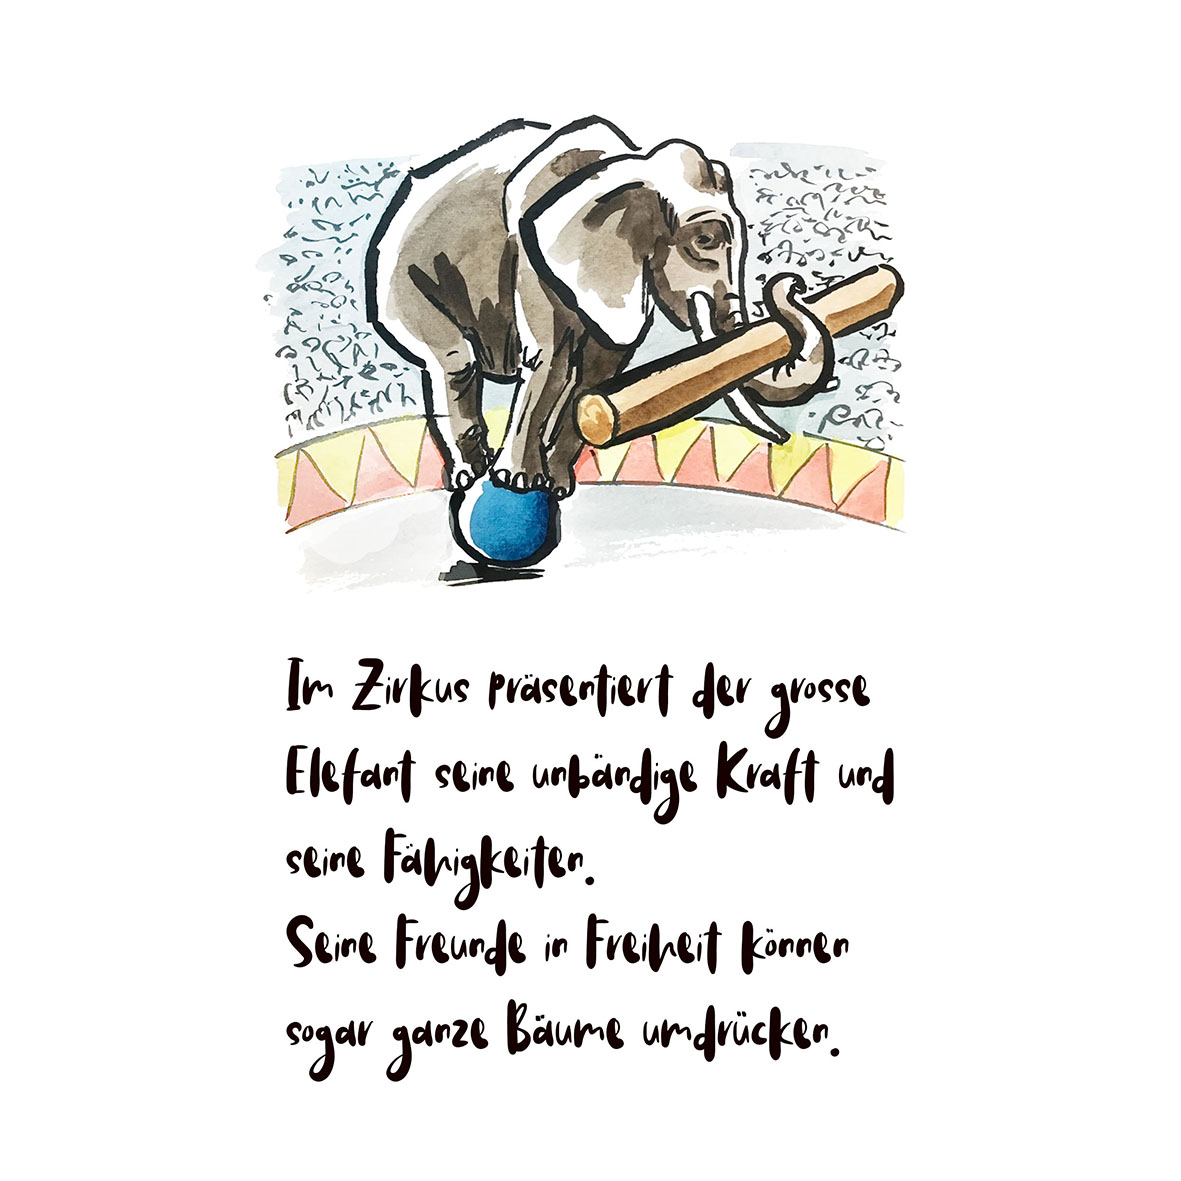 Im Zirkus präsentiert der grosse
Elefant seine unbändige Kraft und
seine Fähigkeiten.
Seine Freunde in Freiheit können
sogar ganze Bäume umdrücken.